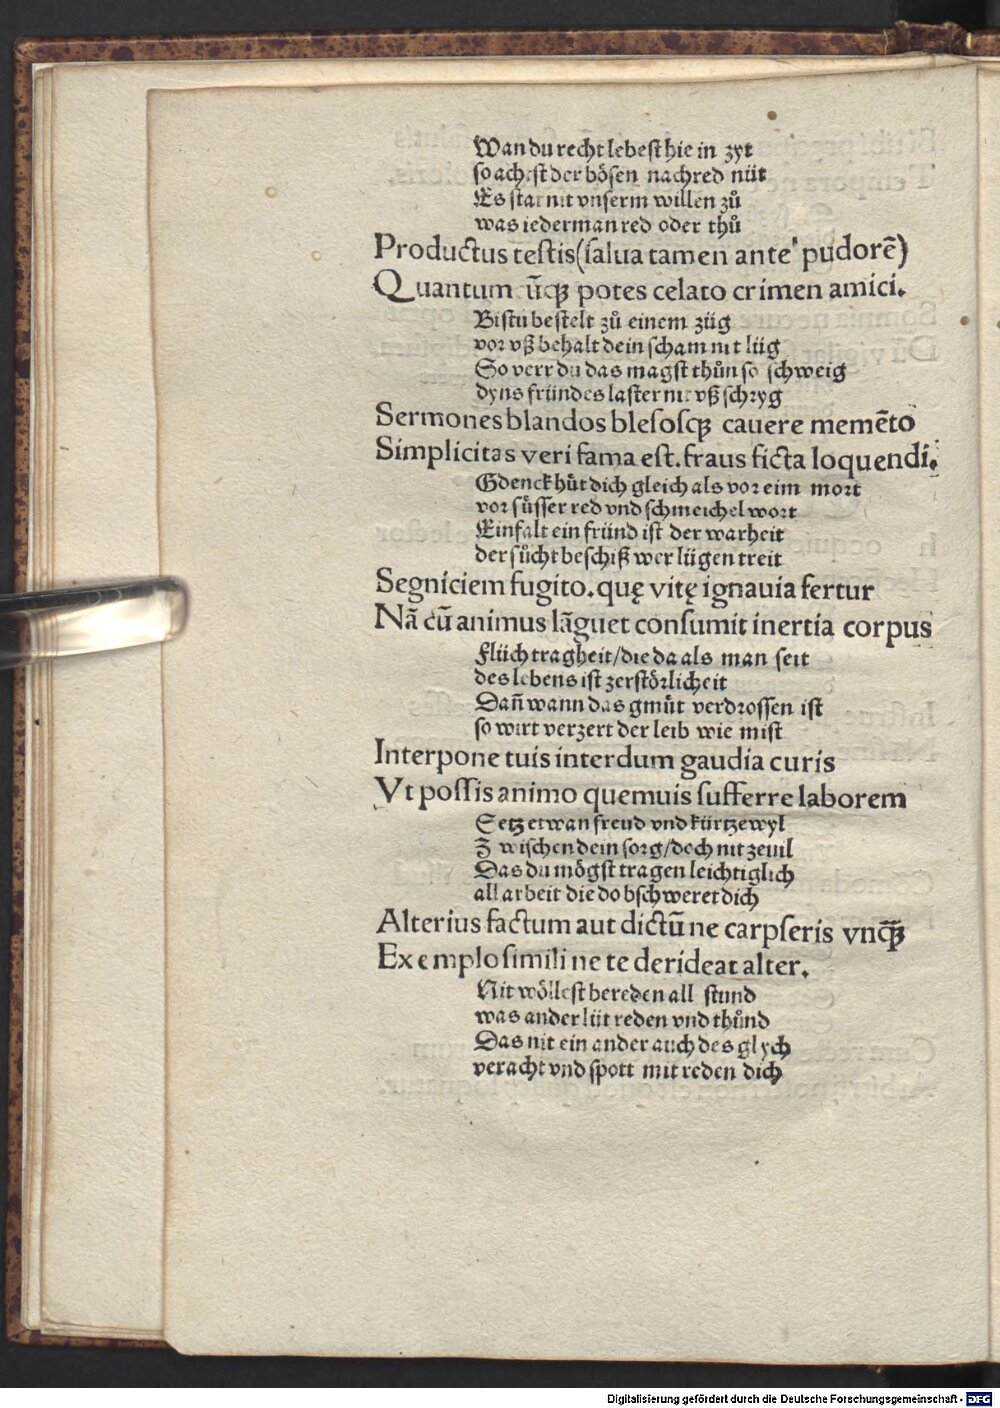 Wan du recht lebest hie in zyt
so achtst der bösen nachred nüt
Es stat nit vnserm willen zů
was iederman red oder thů
Productus testis(salua tamen ante pudorẽ)
Quantum ũcꝗ potes celato crimen amici.
Bistu bestelt zů einem züg
vor vß behalt dein scham nit lüg
So verr du das magst thůn so schweig
dyns fründes laster nit vß schryg
Sermones blandos blesoscꝗ cauere memẽto
Simplicitas veri fama est. fraus ficta loquendi.
Gdenck hůt dich gleich als vor eim mort
vor sůsser red vnd schmeichel wort
Einfalt ein fründ ist der warheit
der sůcht beschiß wer lügen treit
Segniciem fugito. quę vitę ignauia fertur
Nã cũ animus lãguet consumit inertia corpus
Flüch tragheit/die da als man seit
des lebens ist zerstörlicheit
Dañ wann das gmůt verdrossen ist
so wirt verzert der leib wie mist
Interpone tuis interdum gaudia curis
Vt possis animo quemuis sufferre laborem
Setz etwan freud vnd kürtzewyl
Zwischen dein sorg/doch nit zeuil
Das du mögst tragen leichtiglich
all arbeit die do bschweret dich
Alterius factum aut dictũ ne carpseris vnꝗ̃
Exemplo simili ne te derideat alter.
Nit wöllest bereden all stund
was ander lüt reden vnd thůnd
Das nit ein ander auch des glych
veracht vnd spott mit reden dich
Digitalisierung gefördert durch die Deutsche Forschungsgemeinschaft - DFG